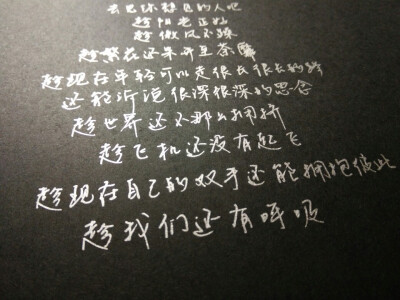 去见你想见的人吧
趁阳光正好
趁微风不躁
趁繁花还未开至荼蘼
趁现在年轻可以走很长很长的路
还能诉说很深很深的思念
趁世界还不那么拥挤
趁飞机还没有起飞
趁现在自己的双手还能拥抱彼此
趁我们还有呼吸